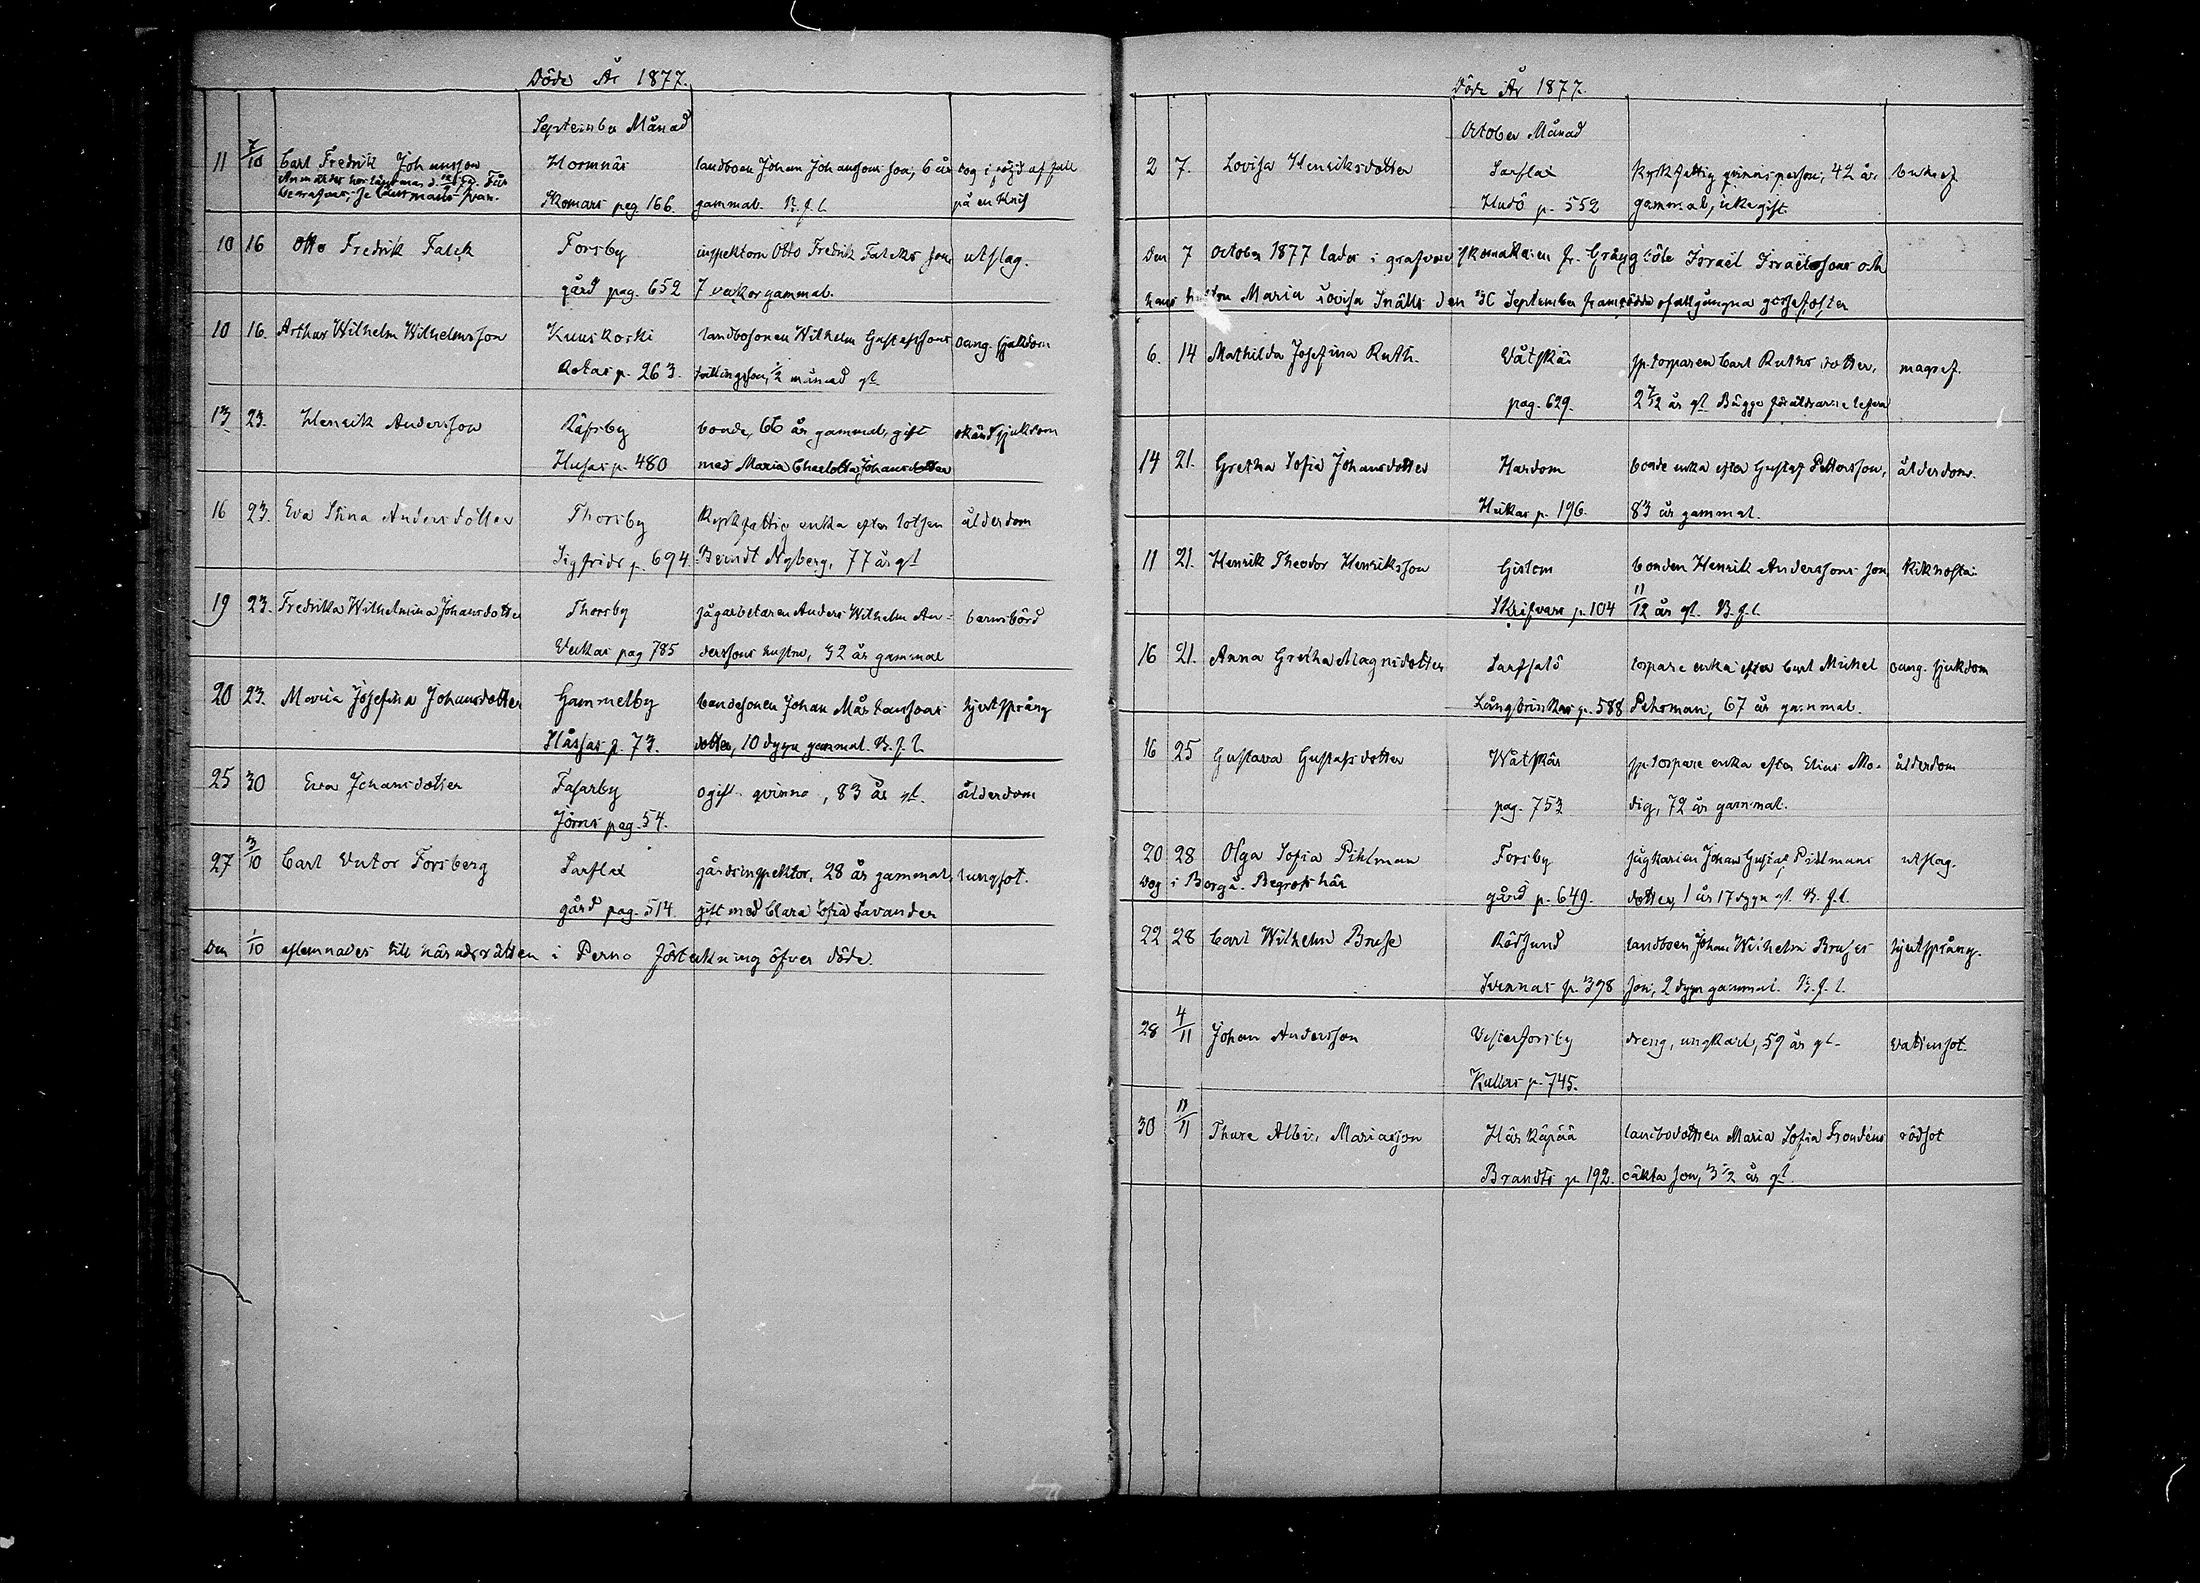 Döde År 1877.
September Månad
11 7/10 Carl Fredrik Johansson Hormnäs landboen Johan Johanssons son, 6 år dog i följd af fall
Anmäldes hos länsman d.
Skomars pag. 166. gammal. B. f. l. på en knif
10 16 Otto Fredrik Falck Forsby inspektorn Otto Fredrik Falcks son utslag.
gård pag. 652 7 veckor gammal.
10 16. Arthur Wilhelm Wilhelmsson Kuuskoski landbosonen Wilhelm Gustafssons oang. sjukdom
Rotas p. 263. tvillingson, 1/2 månad gl.
13 23. Henrik Andersson Räfsby bonde, 66 år gammal, gift okänd sjukdom
Husas p. 480 med Maria Charlotta Johansdotter
16 23. Eva Stina Andersdotter Thorsby Kyrkfattig enka efter lotsen ålderdom
Sigfrids p. 694. Berndt Nyberg, 77 år gl
19 23. Fredrika Wilhelmina Johansdotter Thorsby sågarbetaren Anders Wilhelm An- barnsbörd
Veckas pag 785 derssons hustru, 32 år gammal
20 23. Maria Josefina Johansdotter Gammelby bondesonen Johan Mårtenssons hjertsprång
Slåssas p. 73. dotter, 10 dygn gammal. B. f. l.
25 30 Eva Johansdotter Fasarby ogift qvinna, 83 år gl. ålderdom
Jörns pag. 54.
27 3/10 Carl Victor Forsberg Sarflax gårdsinspektor, 28 år gammal, lungsot.
gård pag. 514 gift med Clara Sofia Savander
Den 1/10 aflemnades till häradsrätten i Perno förtekning öfver döde.
Döde År 1877.
October Månad
2 7. Lovisa Henriksdotter Sarflax Kyrkfattig qvinnsperson, 42 år
Hudö p. 552 gammal, icke gift.
Den 7 October 1877 lades i grafven skomakaren fr. Gråggböle Israël Israëlssons och
hans hustru Maria Lovisa Snälls den 30 September framfödde ofullgångna gossefoster
6. 14 Mathilda Josefina Ruth. Våtskär sp. torparen Carl Ruths dotter, magsf.
pag. 629. 2 7/12 år gl. Bägge föräldrarne lefva
14 21. Gretha Sofia Johansdotter Hardom bonde enka efter Gustaf Pettersson, ålderdom.
Heikas p. 196. 83 år gammal.
11 21. Henrik Theodor Henriksson Gislom bonden Henrik Anderssons son kikhosta
Skrifvars p. 104 11/12 år gl. B. f. l.
16 21. Anna Gretha Magnsdotter Sarfsalö torpare enka efter Carl Mickel oang. sjukdom
Långbrinkas p. 588 Pehrman, 67 år gammal.
16 25 Gustava Gustafsdotter Wåtskär sp. torpare enka efter Elias Mo- ålderdom
pag. 753 dig, 72 år gammal.
20 28 Olga Sofia Pihlman Forsby sågkarlen Johan Gustaf Pihlmans utslag.
Dog i Borgå. Begrofs här gård p. 649. dotter, 1 år 17 dygn gl. B. f. l.
22 28 Carl Wilhelm Bruse Rödsund landboen Johan Wilhelm Bruses hjertsprång.
Svennas p. 398 son, 2 dygn gammal. B. f. l.
28 4/11 Johan Andersson Vesterforsby dreng, ungkarl, 59 år gl. vattensot.
Kullas p. 745.
30 11/11 Thure Albin Mariasson Härkäpää landbodottren Maria Sofia Frondéns rödsot
Brandts p. 192. oäkta son, 3 1/2 år gl.